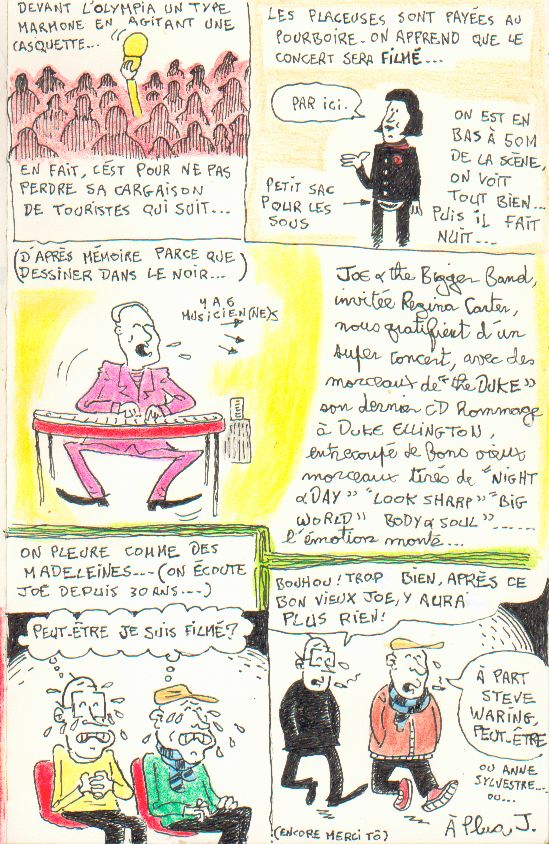 DEVANT L'OLYMPIA UN TYPE
MARMONE EN AGITANT UNE
CASQUETTE...
EN FAIT, C'EST POUR NE PAS
PERDRE SA CARGAISON
DE TOURISTES QUI SUIT...
LES PLACEUSES SONT PAYÉES AU
POURBOIRE. ON APPREND QUE LE
CONCERT SERA FILMÉ...
PAR ICI.
PETIT SAC
POUR LES
SOUS
ON EST EN
BAS À 50M
DE LA SCÈNE,
ON VOIT
TOUT BIEN...
PUIS IL FAIT
NUIT...
(D'APRÈS MÉMOIRE PARCE QUE
DESSINER DANS LE NOIR...)
Y A 6
MUSICIEN(NE)S
JOE & the Bigger Band,
invitée Regina Carter,
nous gratifient d'un
super concert, avec des
morceaux de "the DUKE"
son dernier CD Hommage
à DUKE ELLINGTON,
entrecoupé de Bons vieux
morceaux tirés de "NIGHT
& DAY" "LOOK SHARP" "BIG
WORLD" BODY & SOUL"......
l'émotion monte...
ON PLEURE COMME DES
MADELEINES... (ON ÉCOUTE
JOE DEPUIS 30 ANS...)
PEUT-ÊTRE JE SUIS FILMÉ?
BOUHOU! TROP BIEN, APRÈS CE
BON VIEUX JOE, Y AURA
PLUS RIEN!
À PART
STEVE
WARING,
PEUT-ÊTRE
OU ANNE
SYLVESTRE...
OU...
(ENCORE MERCI TÔ)
À Plus, J.